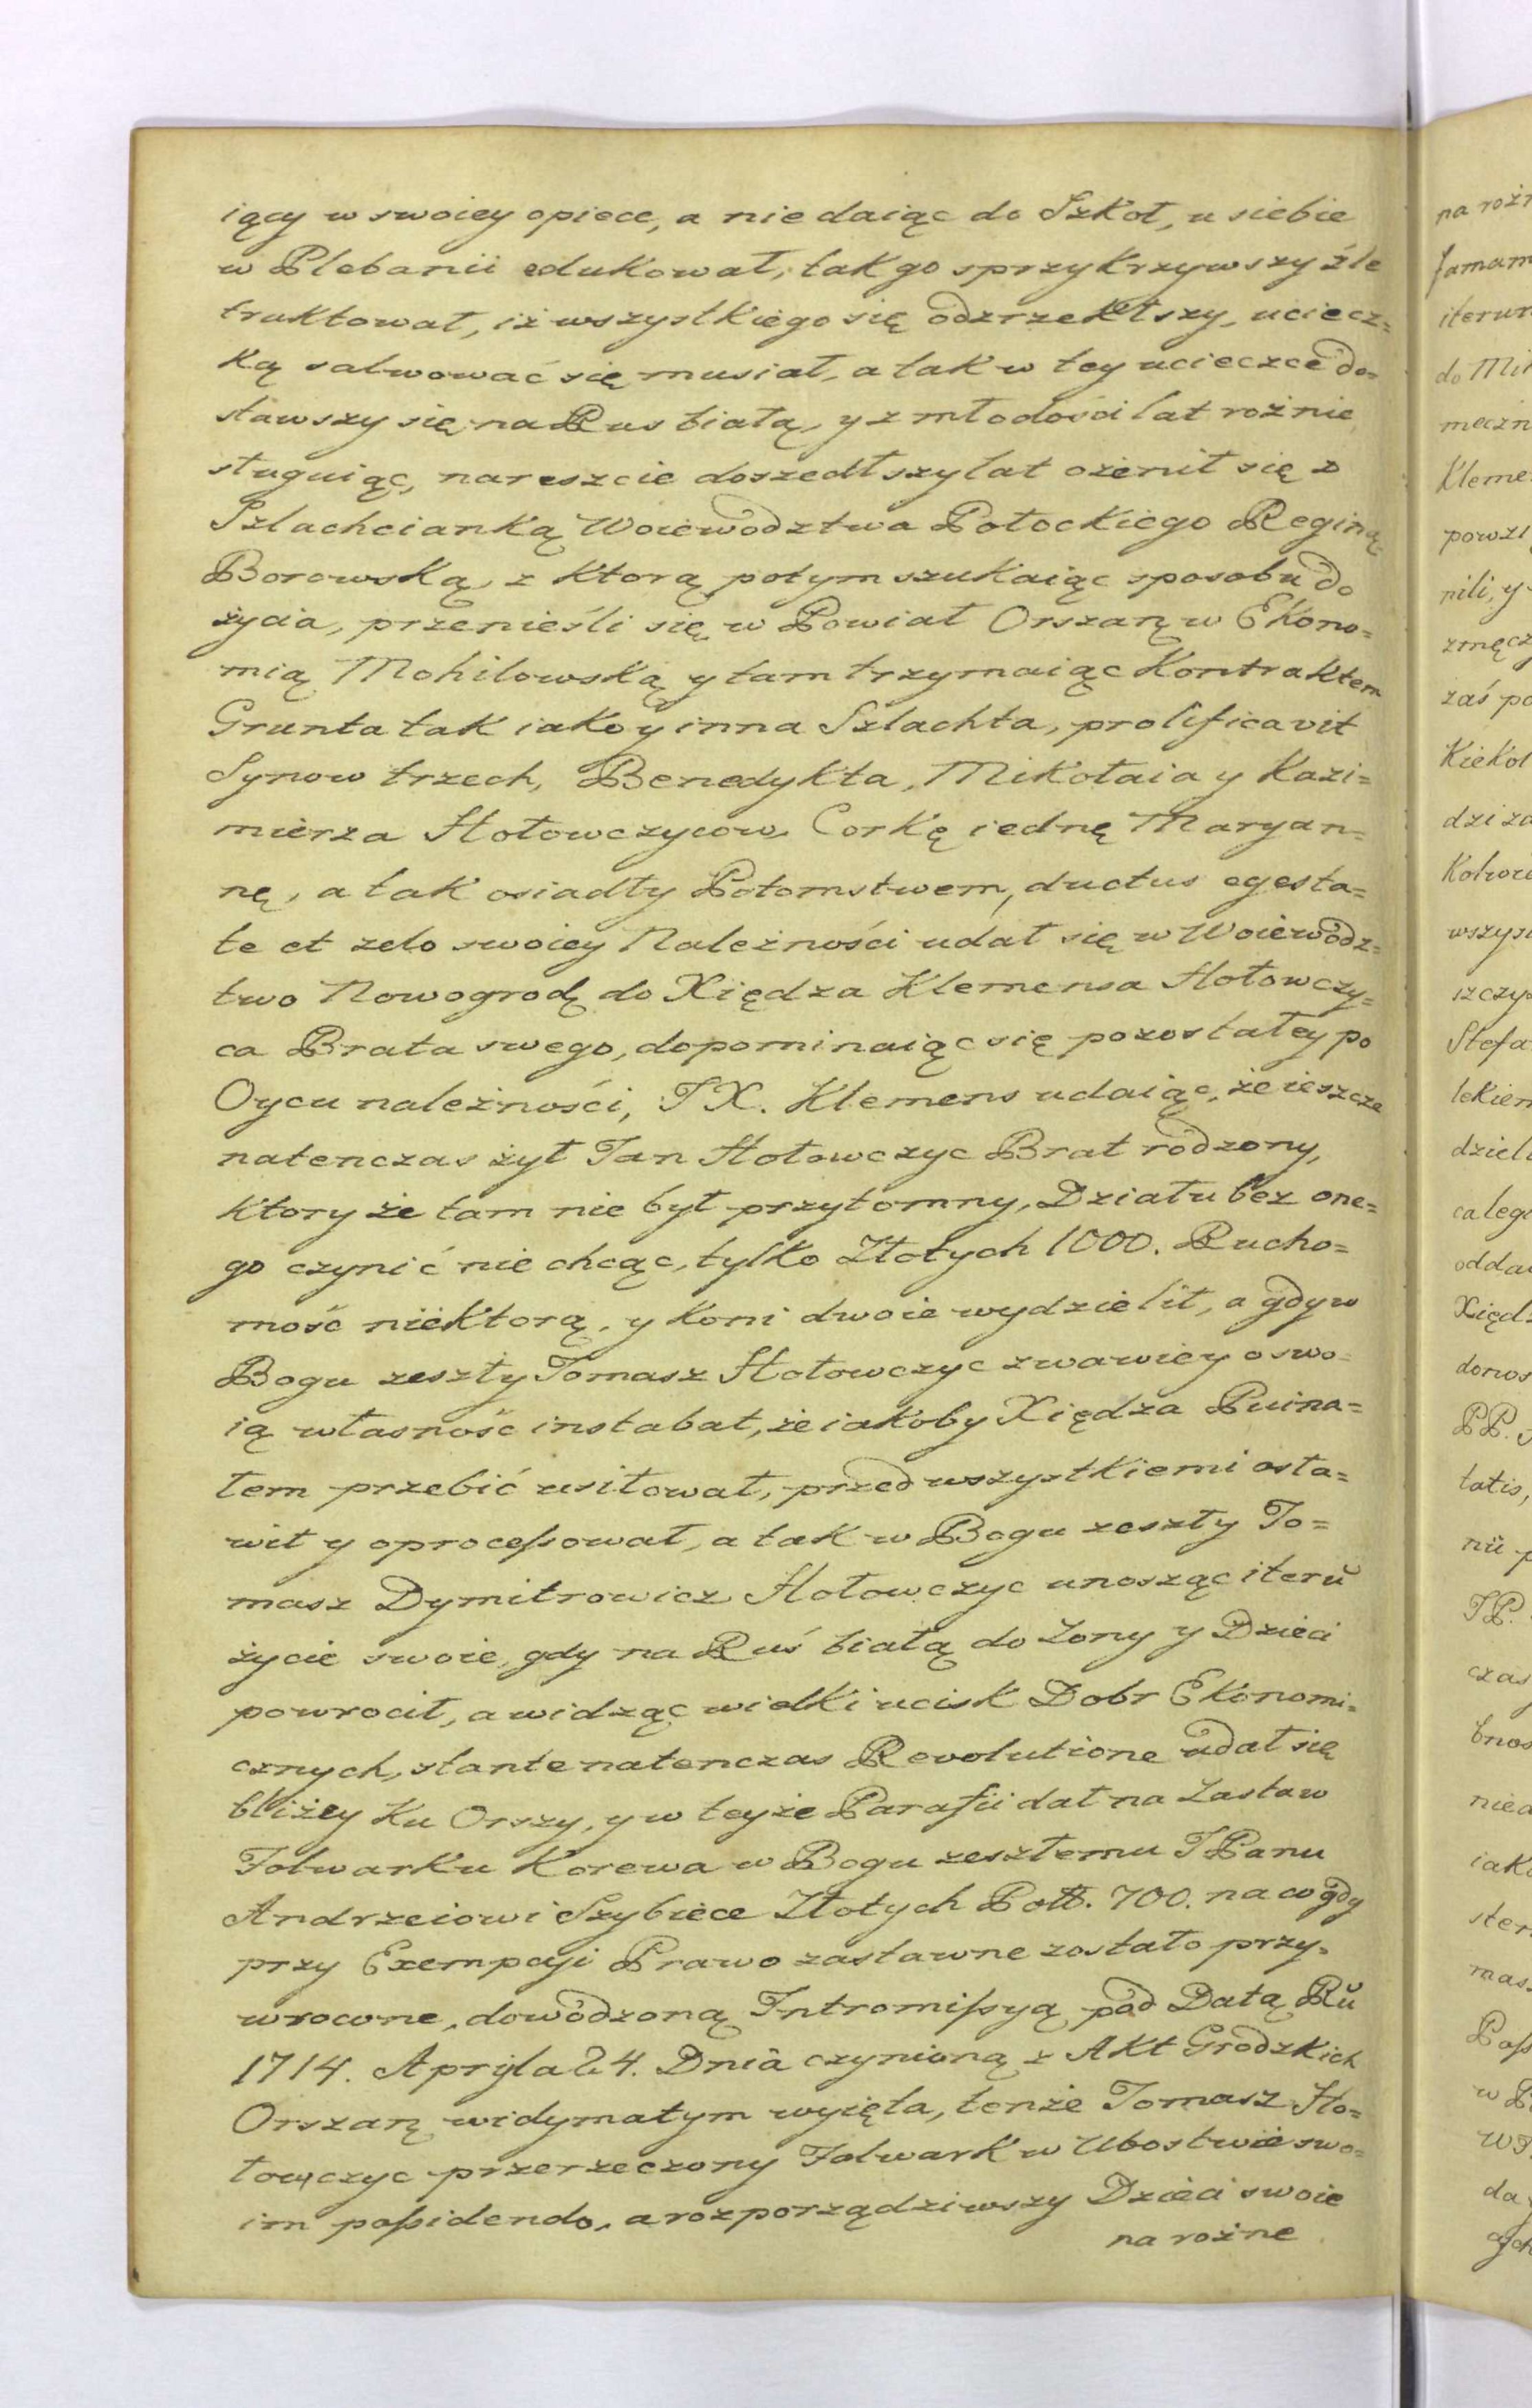 iący w swoiey opiece, a nie daiąc do Szkoł, u siebie
w Plebanii edukował, tak go sprzykrzywszy źle
traktował, iż wszystkiego się odzrzekłszy, uciecz=
ką salwować się musiał, a tak w tey ucieczce do=
stawszy się na Rus białą, y z młodości lat rożnie
sługuiąc, nareszcie doszedłszy lat ożenił się z
Szlachcianką Woiewodztwa Połockiego Reginą
Borowską, z ktorą potym szukaiąc sposobu do
życia, przenieśli się w Powiat Orszań w Ekono=
mią Mohilowską y tam trzymaiąc Kontraktem
Grunta tak iako y inna Szlachta, prolificavit
Synow trzech, Benedykta, Mikołaia y Kazi=
mierza Hołowczycow, Corkę iednę Maryan=
nę, a tak osiadły Potomstwem, ductus egesta=
te et zelo swoiey Należności udał się w Woiewodz=
two Nowogrod do Xiędza Klemensa Hołowczy=
ca Brata swego, dopominaiąc się pozostałey po
Oycu należności, J X. Klemens udaiąc, że ieszcze
natenczas żył Jan Hołowczyc Brat rodzony,
ktory że tam nie był przytomny, Działu bez one=
go czynić nie chcąc, tylko Złotych 1000. Rucho=
mość niektorą, y koni dwoie wydzielił, a gdy w
Bogu zeszły Tomasz Hołowczyc zwawiey o swo=
ią własność instabat, że iakoby Xiędza Puina=
łem przebić usiłował, przed wszystkiemi osła=
wił y oprocessował, a tak w Bogu zeszły To=
masz Dymitrowicz Hołowczyc unosząc iterū
życie swoie, gdy na Ruś białą do Zony y Dzieci
powrocił, a widząc wielki ucisk Dobr Ekonomi=
cznych, stante natenczas Revolutione udał się
bliżey Ku Orszy, y w teyże Parafii dał na Zastaw
Folwarku Korewa w Bogu zeszłemu J Panu
Andrzeiowi Szybiece Złotych Poll. 700. na co gdy
przy Exempcyi Prawo zastawne zostało przy=
wrocone, dowodzoną Intromissyą pod Datą Rŭ
1714. Apryla 24. Dnia czynioną z Akt Grodzkich
Orszań widymatym wyięta, tenże Tomasz Ho=
łowczyc przerzeczony Folwark w Ubostwie swo=
im possidendo, a rozporządziwszy Dzieci swoie
na rożne